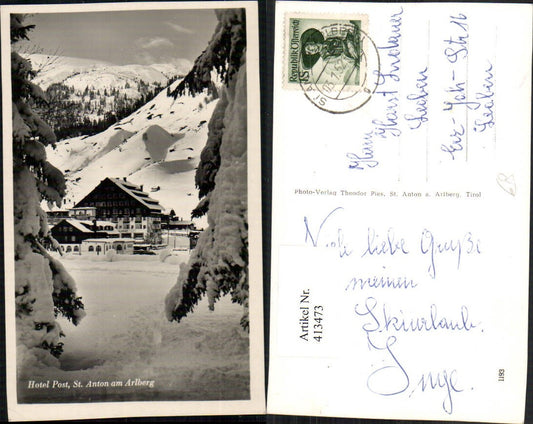 Hotel Post, St. Anton am Arlberg
Republik Österreich
Herrn
Horst
Leoben
Erz-Joh-Str 16
Leoben
Photo-Verlag Theodor Pies, St. Anton a. Arlberg, Tirol
Artikel Nr.
413473
liebe Grüße
meinen
Skiurlaub.
Inge.
1193